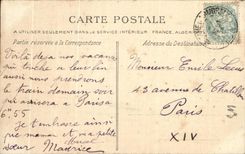 CARTE POSTALE
A UTILISER SEULEMENT DANS LE SERVICE INTÉRIEUR FRANCE, ALGÉRIE
Partie réservée à la Correspondance
Adresse du Destinataire
Voilà déjà nos vacances
qui touche à leur fin
aussi nous prenons
le train demain soir
qui arrivera à Paris à
6.55
Je t'embrasse ainsi
que maman et ma petite
sœur
Maurice
Monsieur Emile
43 avenue de Chatillon
Paris
XIV